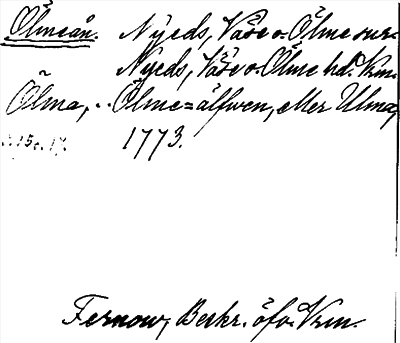 Ölmeån. Nyeds, Väse o. Ölme snr.
Nyeds, Väse o. Ölme hd. Vrm.
Ölma, .. Ölme=älfwen, eller Ulma,
s. 15 o. 17. 1773.
Fernow, Beskr. öfv. Vrm.